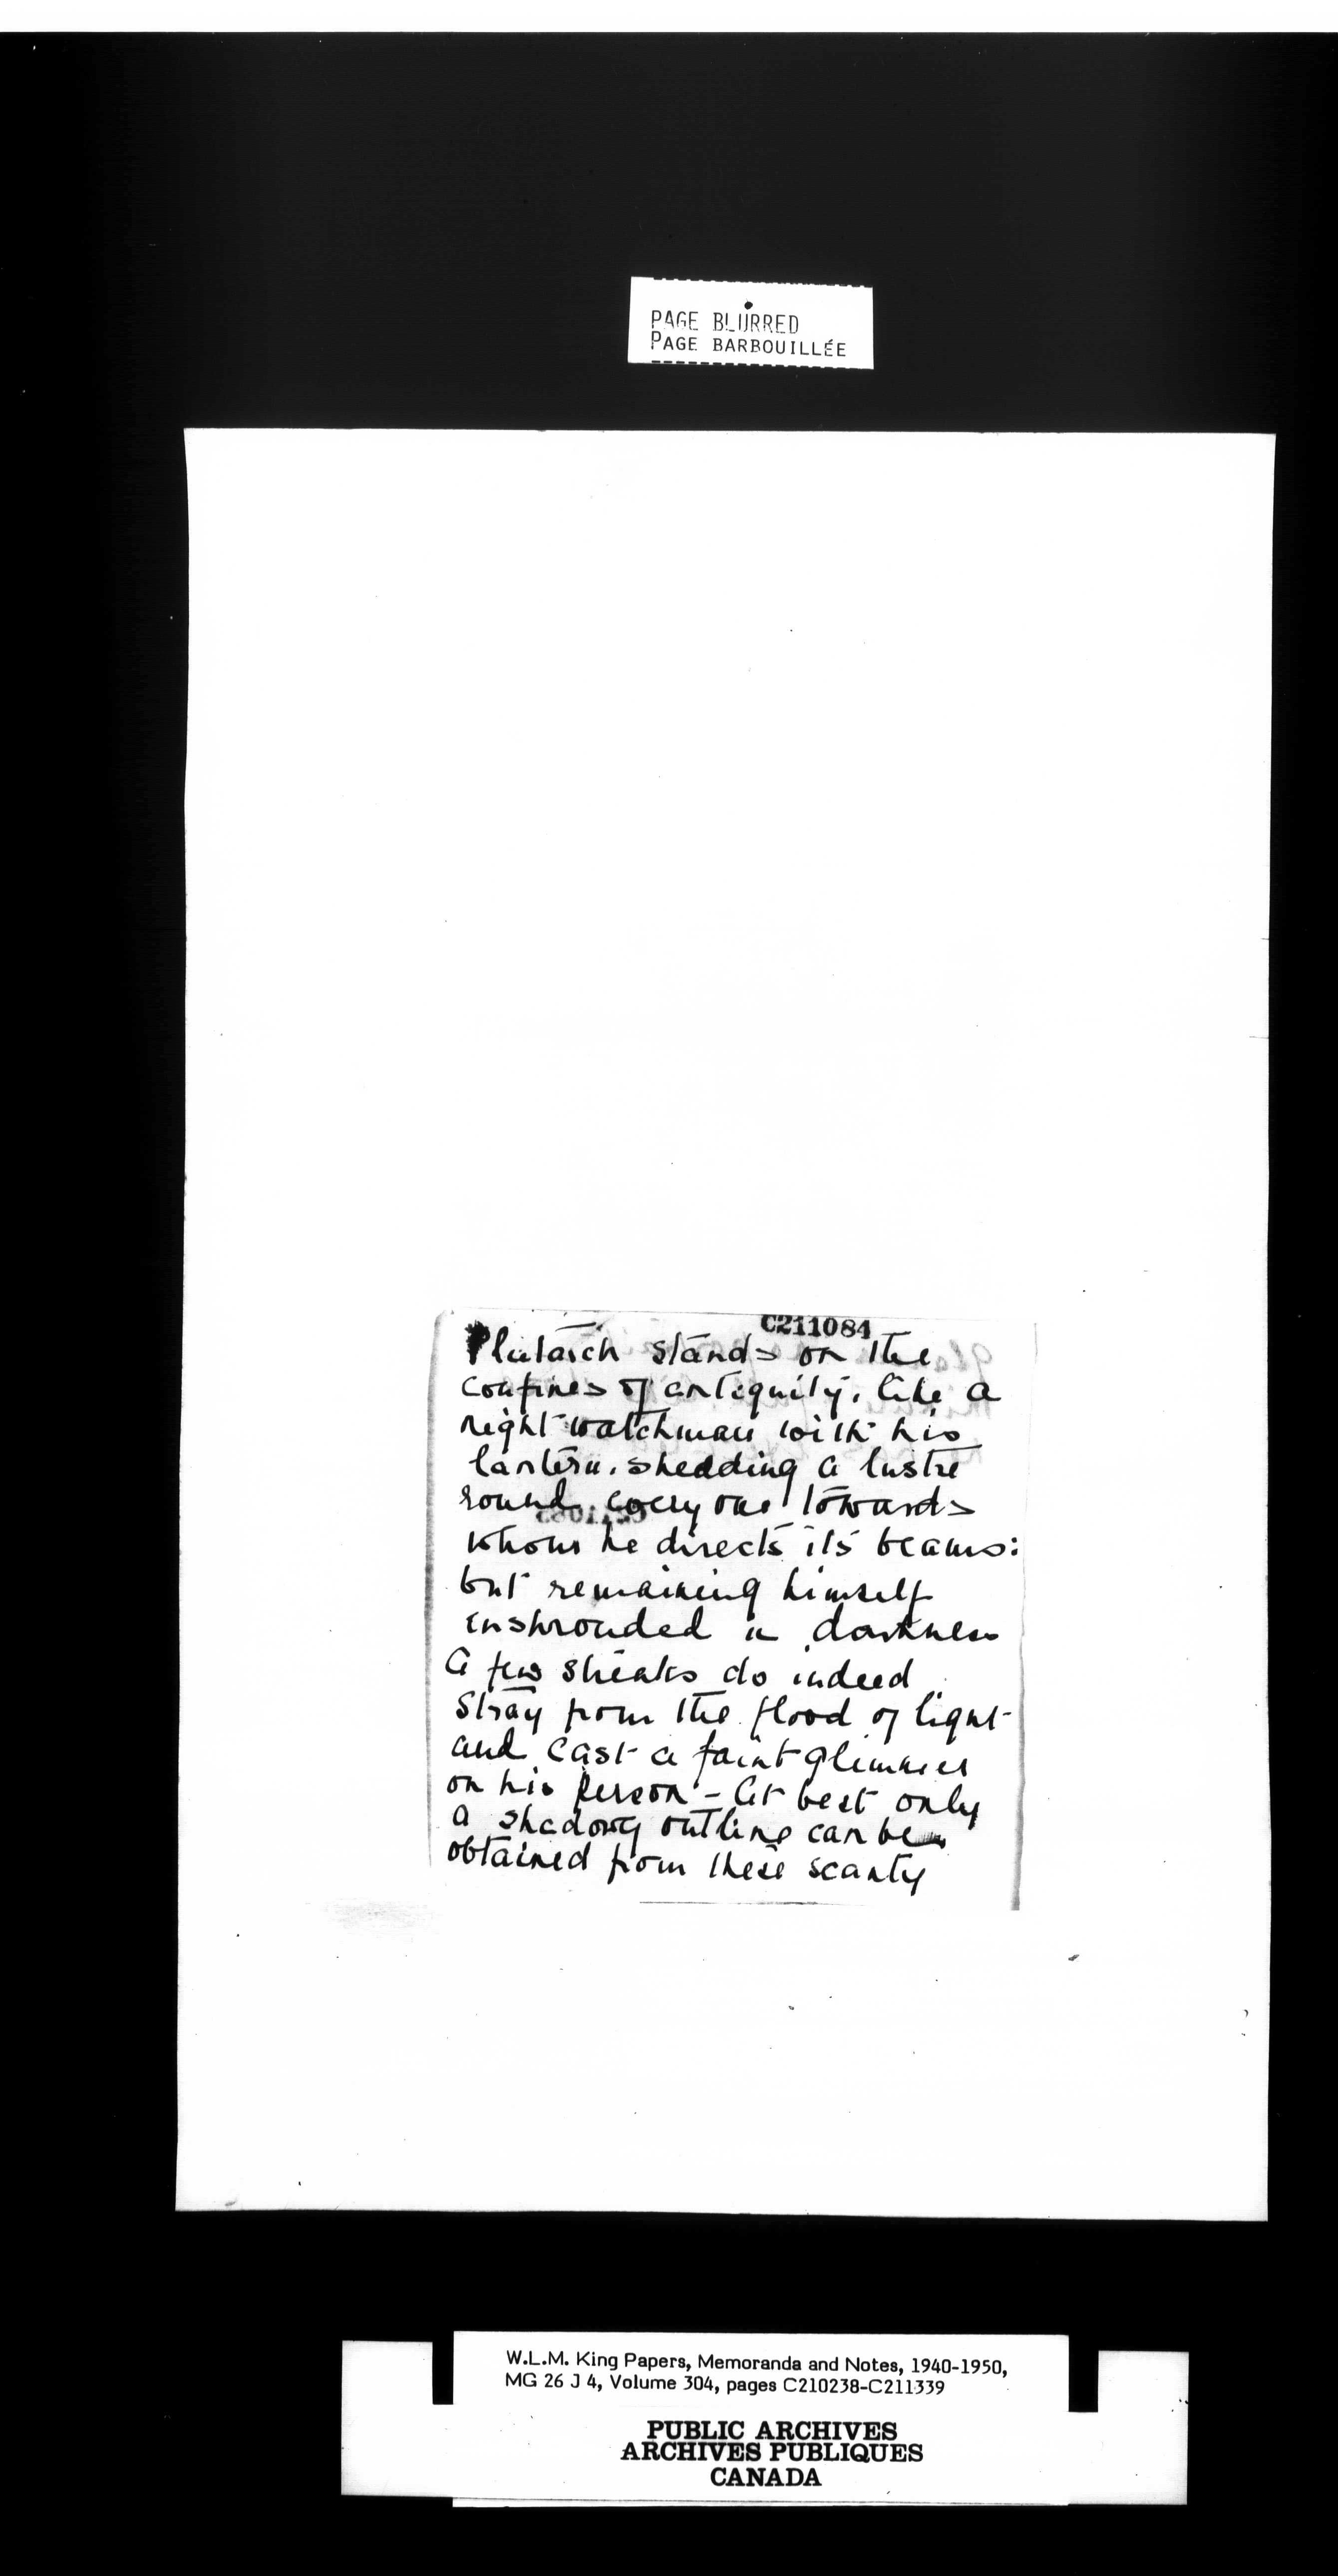 PAGE BLURRED
PAGE BARBOUILLÉE
C211084
Plutarch stands on the
confines of antiquity, like a
night watchman with his
lantern, shedding a lustre
round every one towards
whom he directs its beams:
but remaining himself
enshrouded in darkness
A few streaks do indeed
stray from the flood of light
and cast a faint glimmer
on his person - At best only
a shadowy outline can be
obtained from these scanty
W.L.M. King Papers, Memoranda and Notes, 1940-1950,
MG 26 J 4, Volume 304, pages C210238-C211339
PUBLIC ARCHIVES
ARCHIVES PUBLIQUES
CANADA